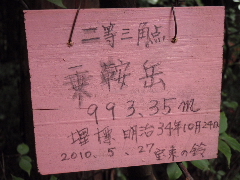 二等三角点
乗鞍岳
993.35m
埋標 明治34年10月24日
2010.5.27 宝来の鈴